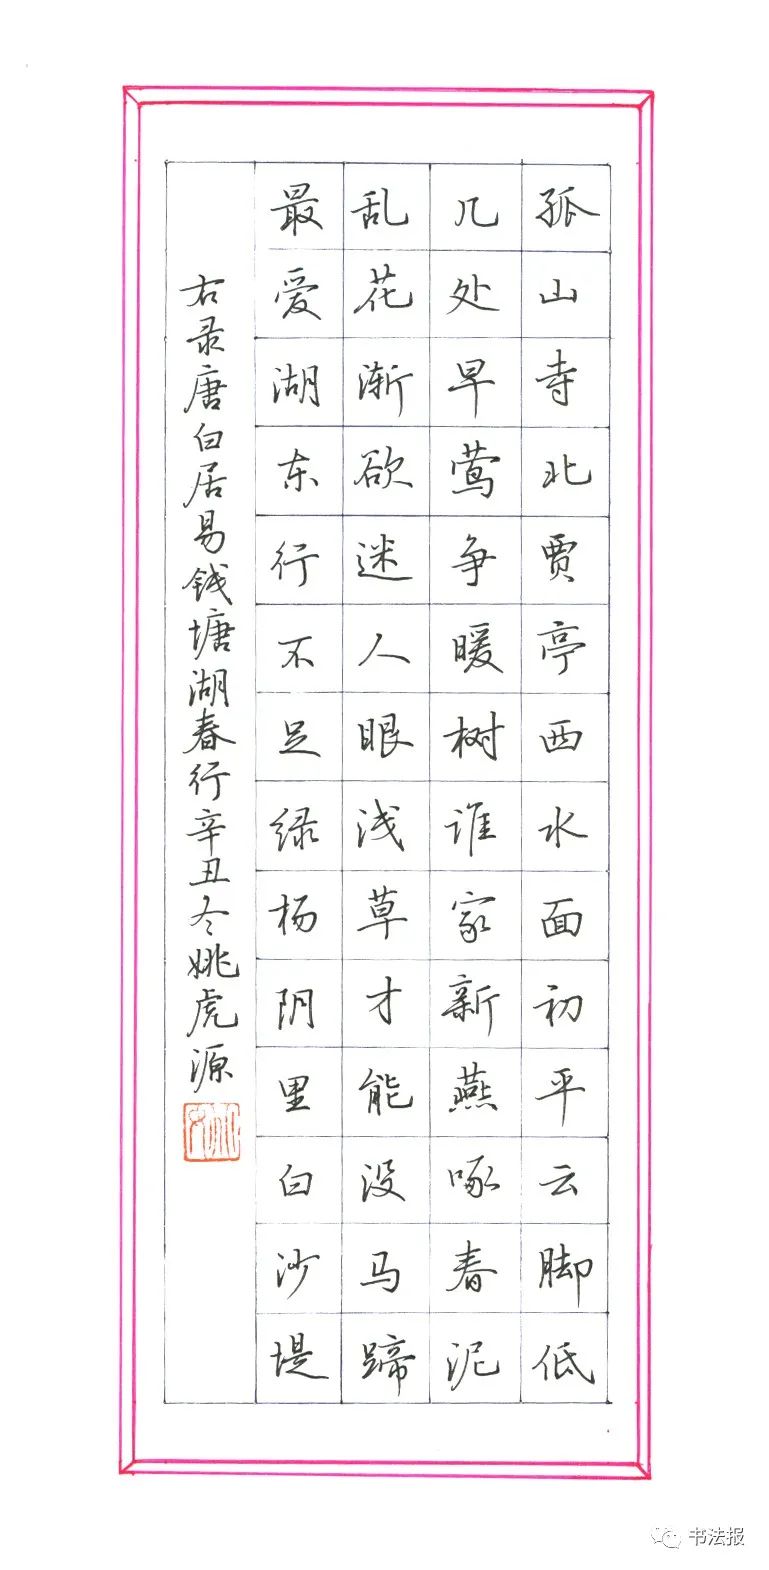 孤山寺北贾亭西水面初平云脚低
几处早莺争暖树谁家新燕啄春泥
乱花渐欲迷人眼浅草才能没马蹄
最爱湖东行不足绿杨阴里白沙堤
右录唐白居易钱塘湖春行辛丑冬姚虎源
书法报